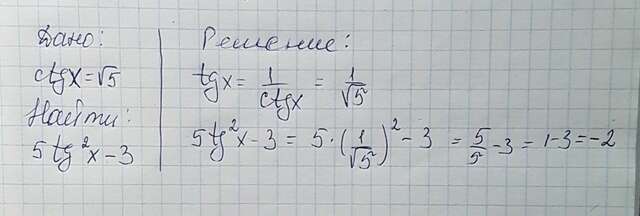 Дано:
ctgx=√5
Найти:
5tg²x-3
Решение:
tgx = 1/ctgx = 1/√5
5tg²x-3 = 5·(1/√5)²-3 = 5/5-3=1-3=-2